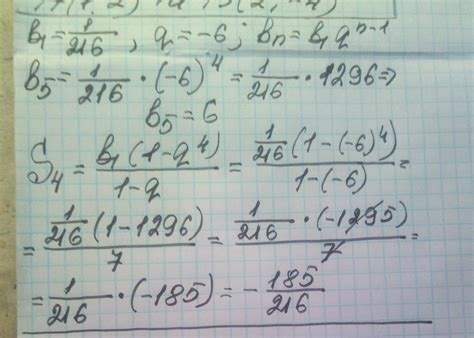 b₁ = 1/216, q = -6; bn = b₁ qⁿ⁻¹
b₅ = 1/216 · (-6)⁴ = 1/216 · 1296 ⇒
b₅ = 6
S₄ = b₁(1-q⁴)/1-q = 1/216 (1-(-6)⁴)/1-(-6) =
= 1/216 (1-1296)/7 = 1/216 · (-1295)/7 =
= 1/216 · (-185) = - 185/216